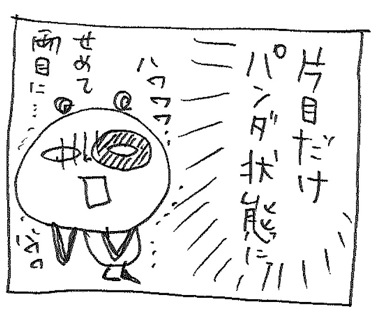 片目だけ
パンダ状態に
ハワワワ
せめて
両目に…